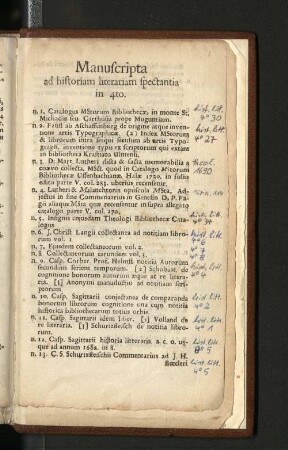 Manuscripta
ad historiam literariam spectantia
in 4to.
n. 1. Catalogus MStorum Bibliothecæ in monte St.
Michaelis seu Carthusiæ prope Moguntiam.
n. 2. Faust ab Aschaffenberg de origine atque inven-
tione artis Typographicæ. (2) Index MStorum
& librorum intra ipsius seculum ab artis Typo-
graph. inventione typis exscriptorum qui extant
in bibliotheca Krafftiana Ulmensi.
n. 3. D. Mart. Lutheri dicta & facta memorabilia a
coævo collecta, MSc. quod in Catalogo MStorum
Bibliothecæ Uffenbachianæ, Halæ 1720. in folio
edito parte V. col. 253. uberius recensetur.
n. 4. Lutheri & Melanchtonis opuscula MSta, Ad-
jectus in fine Commentarius in Genesin D. P. Fa-
gii aliaque MSta quæ recensentur in supra allegato
catalogo parte V. col. 270.
n. 5. Insignis cujusdam Theologi Bibliothecæ Ca-
talogus
n. 6. J. Christ. Langii collectanea ad notitiam libro-
rum vol. 1
n. 7. Ejusdem collectaneorum vol. 2.
n. 8. Collectaneorum earundem vol. 3.
n. 9. Casp. Corber Prof. Helmst. notitia Autorum
secundum seriem temporum. [2] Schubart. de
cognitione bonorum autorum atque ad re litera-
ria. [3] Anonymi manuductio ad notitiam scri-
ptorum
n. 10. Casp. Sagittarii conjectanea de comparanda
bonorum librorum cognitione una cum notitia
historica bibliothecarum totius orbis.
n. 11. Casp. Sagittarii idem liber. [2] Volland de
re literaria. [3] Schurtzfleisch de notitia libro-
rum.
n. 12. Casp. Sagittarii historia litteraria a. c. o. us-
que ad annum 1682. in 8.
n. 13. C. S. Schurtzfleischii Commentarius ad J. H.
Bœcleri
hist. litt.
4° 30
hist. litt.
4° 27
theol.
1630
hist. litt.
4° 6
4° 7
4° 8
hist. litt.
4° 4
hist. litt.
4° 2
hist. litt.
4° 1
hist. litt.
8° 5
hist. litt.
4° 5